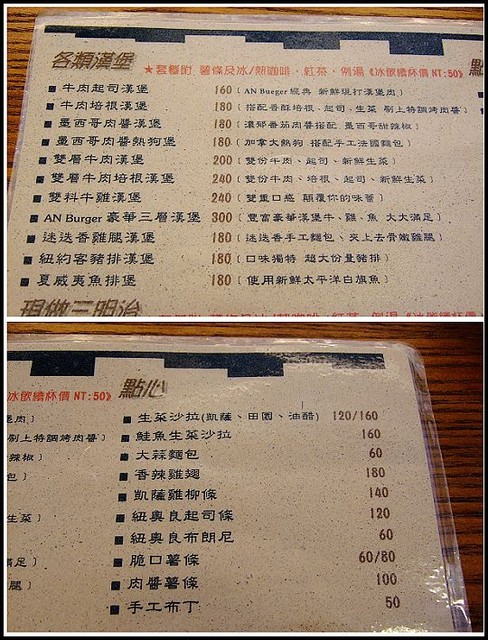 各類漢堡 ★套餐附 薯條及冰/熱咖啡、紅茶、例湯《冰飲續杯價 NT:50》
點
■ 牛肉起司漢堡 160 ( AN Bueger 經典 新鮮現打漢堡肉 )
■ 牛肉培根漢堡 180 ( 搭配香酥培根、起司、生菜 刷上特調烤肉醬 )
■ 墨西哥肉醬漢堡 180 ( 濃郁番茄肉醬搭配 墨西哥甜辣椒 )
■ 墨西哥肉醬熱狗堡 180 ( 加拿大熱狗 搭配手工法國麵包 )
■ 雙層牛肉漢堡 200 ( 雙份牛肉、起司、新鮮生菜 )
■ 雙層牛肉培根漢堡 240 ( 雙份牛肉、培根、起司、新鮮生菜 )
■ 雙料牛雞漢堡 240 ( 雙重口感 顛覆你的味蕾 )
■ AN Burger 豪華三層漢堡 300 ( 豐富豪華漢堡牛、雞、魚 大大滿足 )
■ 迷迭香雞腿漢堡 180 ( 迷迭香手工麵包、夾上去骨嫩雞腿 )
■ 紐約客豬排漢堡 180 ( 口味獨特 超大份量豬排 )
■ 夏威夷魚排堡 180 ( 使用新鮮太平洋白旗魚 )
現做三明治
冰飲續杯價 NT:50》 點心
堡肉 )
刷上特調烤肉醬 )
辣椒 )
包 )
生菜 )
滿足 )
腿 )
■ 生菜沙拉(凱薩、田園、油醋) 120/160
■ 鮭魚生菜沙拉 160
■ 大蒜麵包 60
■ 香辣雞翅 180
■ 凱薩雞柳條 140
■ 紐奧良起司條 120
■ 紐奧良布朗尼 60
■ 脆口薯條 60/80
■ 肉醬薯條 100
■ 手工布丁 50